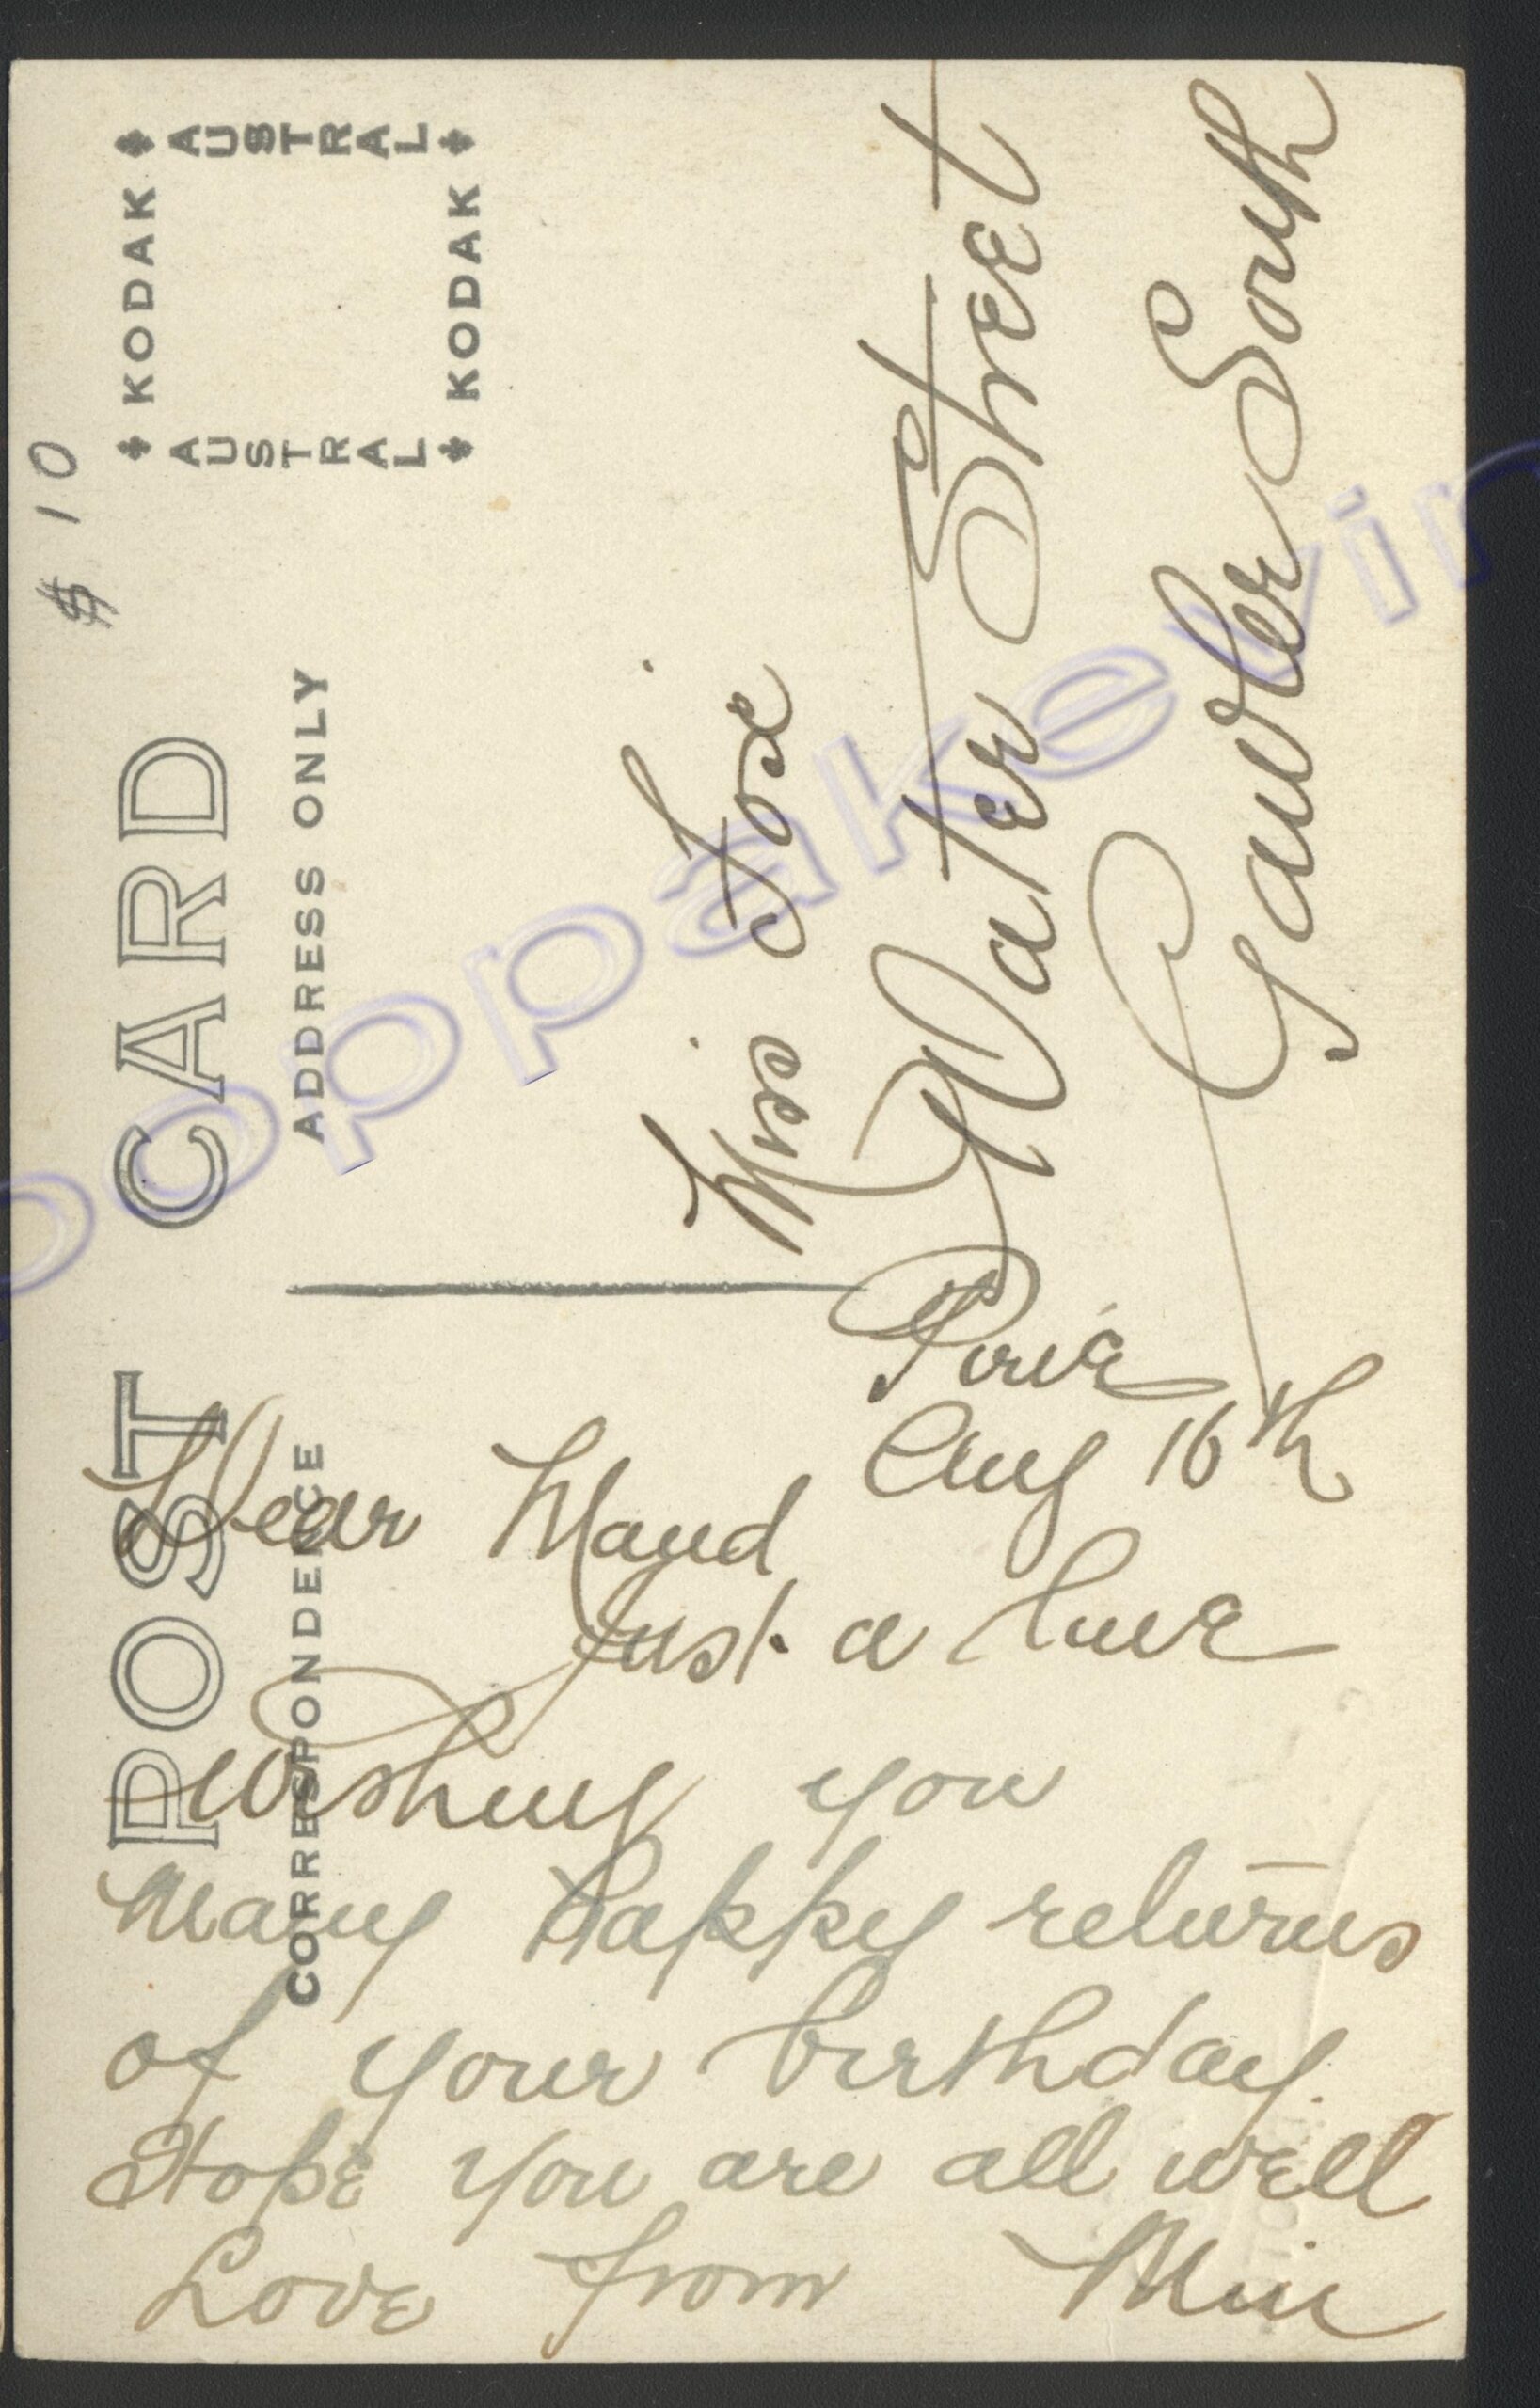 $ 10
POST CARD
CORRESPONDENCE
ADDRESS ONLY
KODAK
AUSTRAL
AUSTRAL
KODAK
Miss Fox.
Water Street
Gawler South
Pirie
Aug 16th
Dear Maud
Just a line
wishing you
Many Happy returns
of your birthday.
Hope you are all well
Love from Min